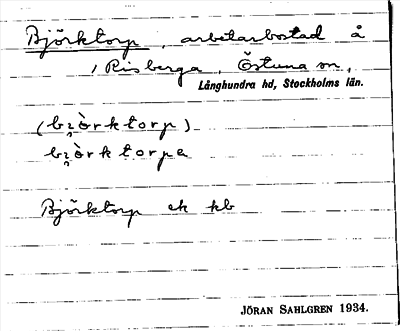 Björktorp, arbetarbostad å
1 Risberga, Östuna sn,
Långhundra hd, Stockholms län.
(bi̯òrktorp)
bi̯òrktorpa
Björktorp ek kb
JÖRAN SAHLGREN 1934.